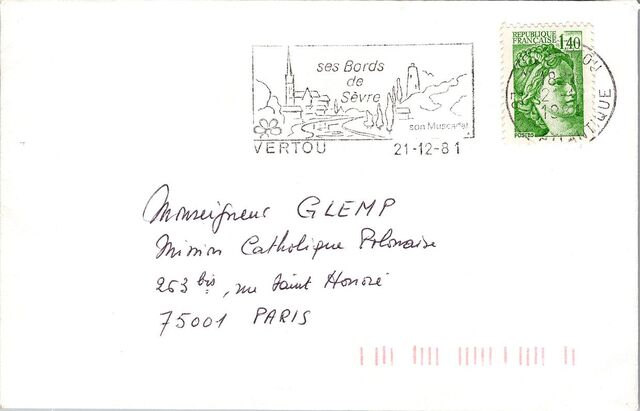 ses Bords
de
Sèvre
son Muscadet
VERTOU 21-12-81
REPUBLIQUE
FRANÇAISE 1,40
POSTES
Monseigneur GLEMP
Mission Catholique Polonaise
263 bis, rue Saint Honoré
75001 PARIS